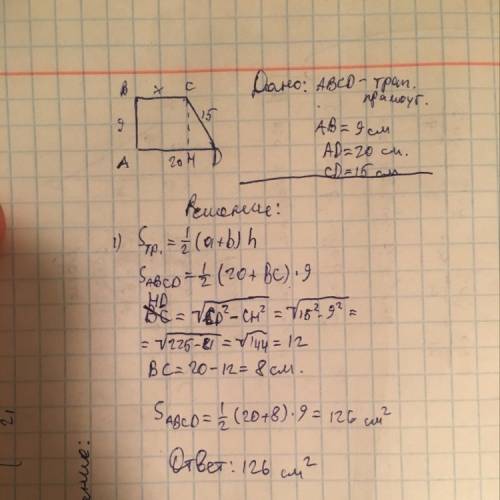 B x C
9
15
A 20 H D
Дано: ABCD – трап.
прямоуг.
AB = 9 см
AD = 20 см.
CD = 15 см
Решение:
1) Sтр. = 1/2 (a+b) h
S_ABCD = 1/2 (20 + BC) · 9
HD = √(CD² – CH²) = √(15² – 9²) =
= √(225 – 81) = √144 = 12
BC = 20 – 12 = 8 см.
S_ABCD = 1/2 (20 + 8) · 9 = 126 см²
Ответ: 126 см²